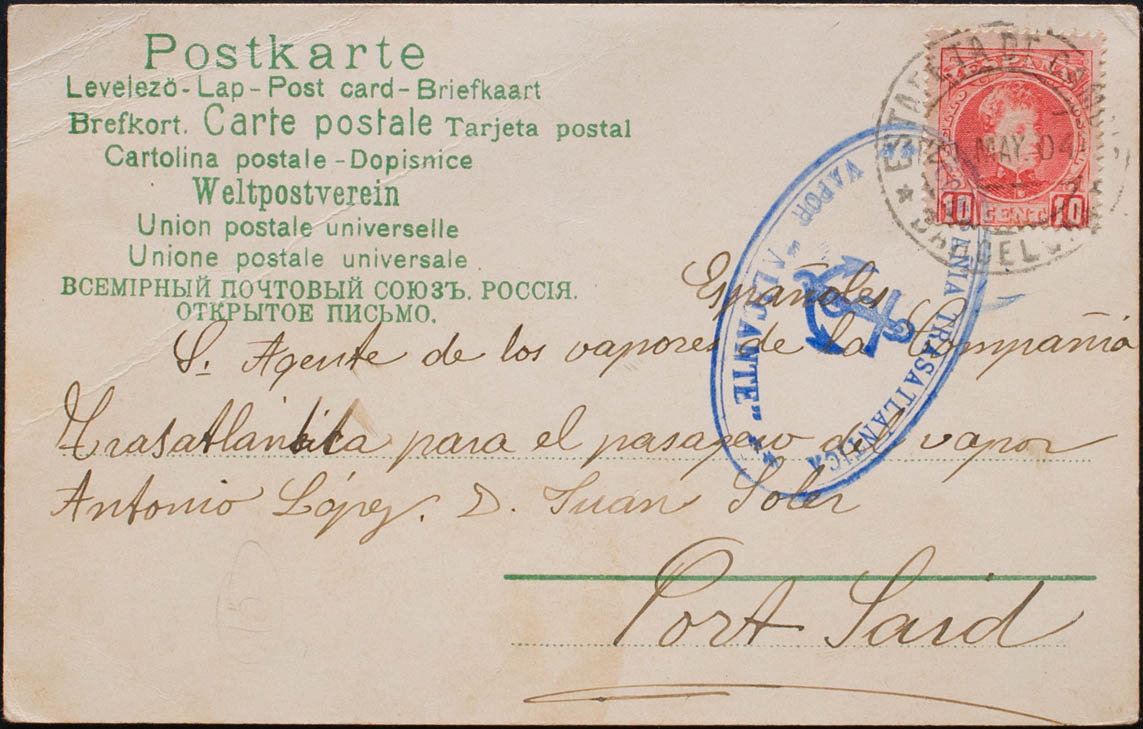 Postkarte
Levelezö - Lap - Post card - Briefkaart
Brefkort. Carte postale Tarjeta postal
Cartolina postale - Dopisnice
Weltpostverein
Union postale universelle
Unione postale universale
ВСЕМІРНЫЙ ПОЧТОВЫЙ СОЮЗЪ. РОССІЯ.
ОТКРЫТОЕ ПИСЬМО.
ESTAFETA DE
MAY 04
BARCELONA
10 CENT. 10
TRASATLÁNTICA
VAPOR „ALICANTE"
Españoles
Sr. Agente de los vapores de la Compañia
Trasatlántica para el pasagero del vapor
Antonio López. D. Juan Soler
Port Said
15